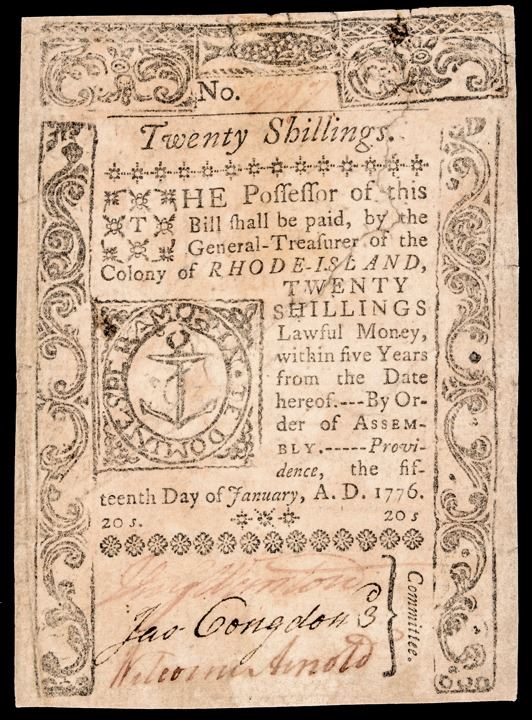 No.
Twenty Shillings.
THE Possessor of this
Bill shall be paid, by the
General-Treasurer of the
Colony of RHODE-ISLAND,
TWENTY
SHILLINGS
Lawful Money,
within five Years
from the Date
hereof.---By Or-
der of ASSEM-
BLY.-----Provi-
dence, the fif-
teenth Day of January, A. D. 1776.
20 s. 20 s
IN TE DOMINE SPERAMUS
Jas Congdon 3d
Welcome Arnold
Committee.